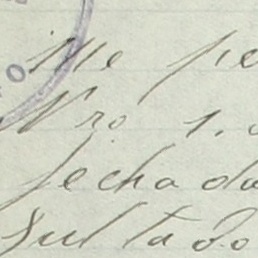 Me pe
Nro 1.0
fecha da
sultado